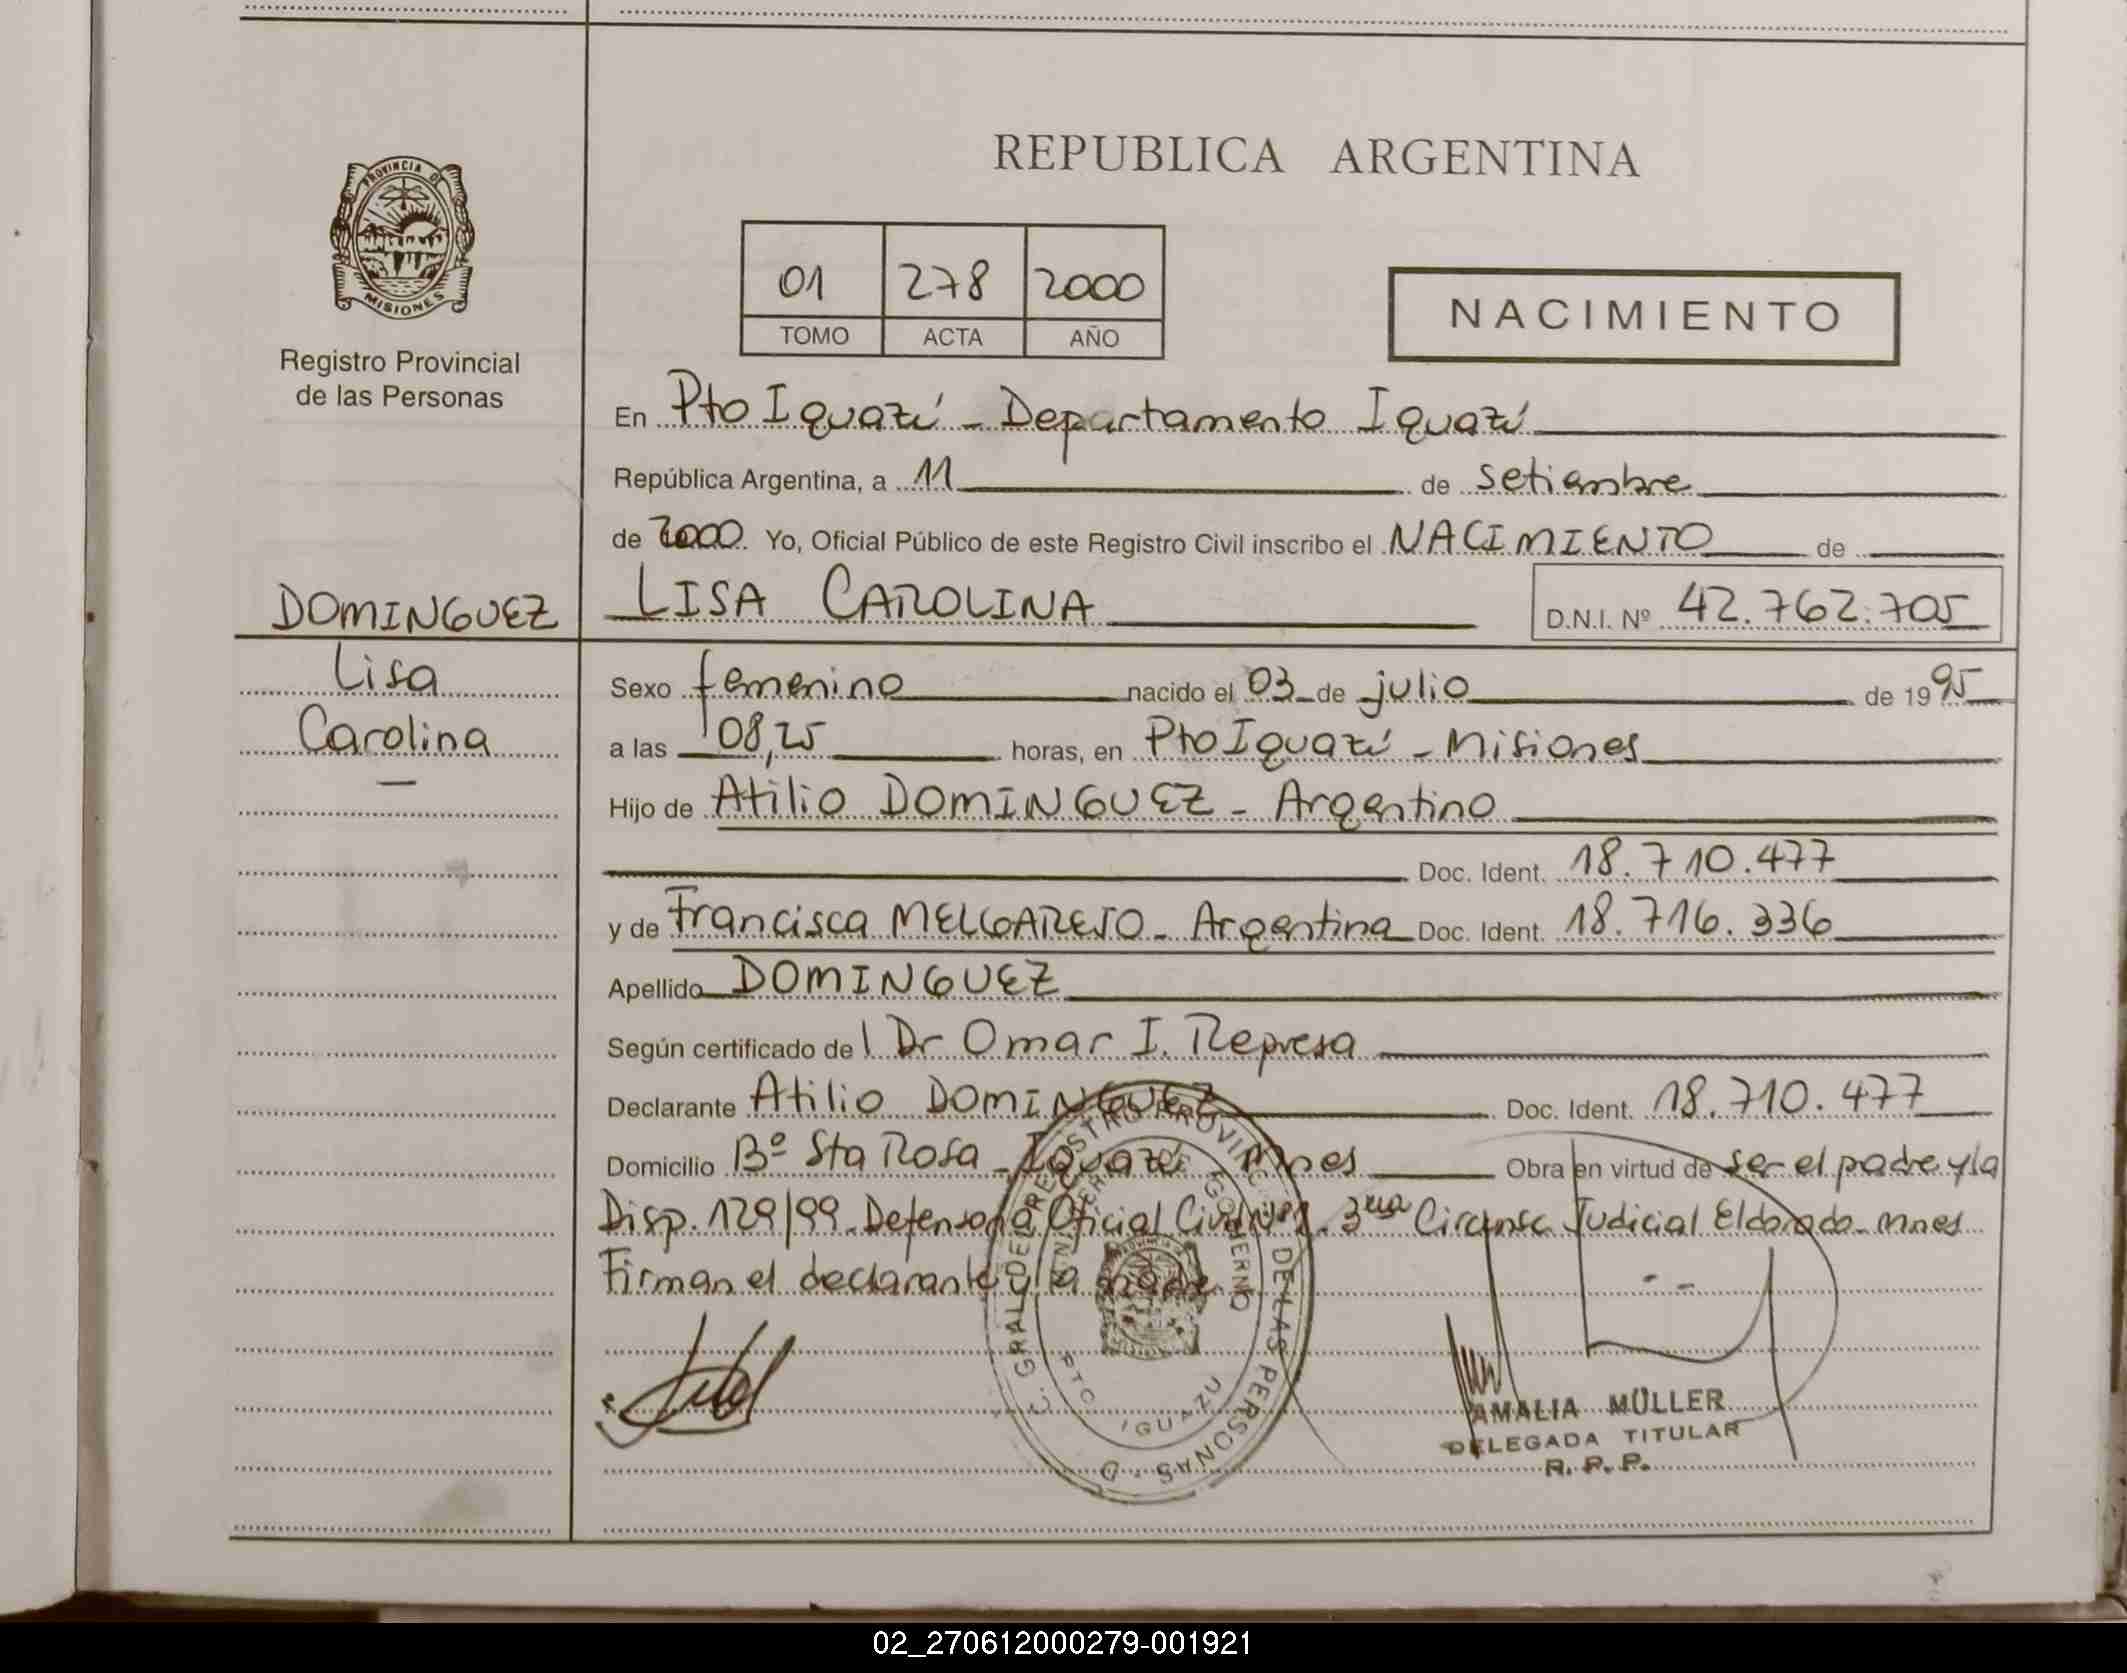 REPUBLICA ARGENTINA
PROVINCIA DE
MISIONES
Registro Provincial
de las Personas
01 278 2000
TOMO ACTA AÑO
NACIMIENTO
En Pto Iguazú - Departamento Iguazú
República Argentina, a 11 de setiembre
de 2000 Yo, Oficial Público de este Registro Civil inscribo el NACIMIENTO de
DOMINGUEZ
Lisa
Carolina
LISA CAROLINA D.N.I. Nº 42.762.705
Sexo femenino nacido el 03 de julio de 1995
a las 08,25 horas, en Pto Iguazú - Misiones
Hijo de Atilio DOMINGUEZ - Argentino
Doc. Ident. 18.710.477
y de Francisca MELGAREJO - Argentina Doc. Ident. 18.716.336
Apellido DOMINGUEZ
Según certificado de Dr Omar I. Represa
Declarante Atilio DOMINGUEZ Doc. Ident. 18.710.477
Domicilio Bº Sta Rosa - Iguazú Mnes Obra en virtud de ser el padre y la
Disp. 129/99 - Defensoría Oficial Civil 3era Circunsc Judicial Eldorado - Mnes
Firman el declarante y la madre
REGISTRO PROVINCIAL DE LAS PERSONAS
GOBIERNO
PTO IGUAZU
AMALIA MÜLLER
DELEGADA TITULAR
R. P. P.
02_270612000279-001921